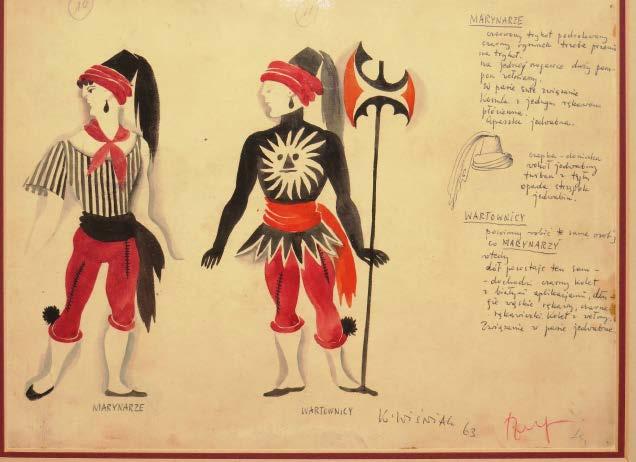 10
11
MARYNARZE
czerwony trykot podszlowany
czarny rysunek trzeba przenieść
na trykot.
na jednej nogawce duży pom-
pon wełniany.
W pasie suto związanie
Koszula z jednym rękawem
płócienna.
Apaszka jedwabna.
czapka - domina
wokół jedwabny
turban z tyłu
opada strzępek
jedwabiu.
WARTOWNICY
powinny robić te same osoby
co MARYNARZY
wtedy
dół pozostaje ten sam -
- dochodzi czarny kolet
z białymi aplikacjami, dłu-
gie wąskie rękawy, czarne
rękawiczki. Kolet z wełny.
Związanie w pasie jedwabne
MARYNARZE
WARTOWNICY
K. WIŚNIAK 63